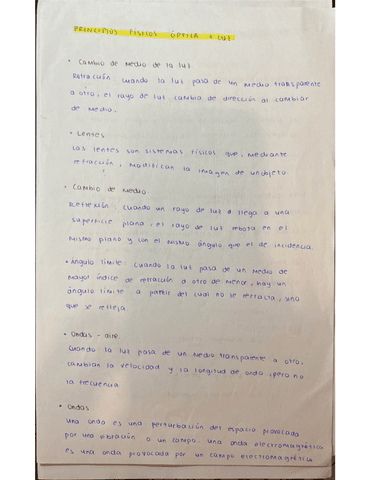 PRINCIPIOS FÍSICOS ÓPTICA + LUZ
• Cambio de Medio de la luz
Refracción cuando la luz pasa de un medio transparente
a otro, el rayo de luz cambia de dirección al cambiar
de medio.
• Lentes
Las lentes son sistemas físicos que, mediante
refracción, modifican la imagen de un objeto.
• Cambio de medio
Reflexión cuando un rayo de luz llega a una
superficie plana, el rayo de luz rebota en el
mismo plano y con el mismo ángulo que el de incidencia.
• Angulo límite: Cuando la luz pasa de un medio de
mayor índice de refracción a otro de menor, hay un
ángulo límite a partir del cual no se refracta, sino
que se refleja
• Ondas - aire
Cuando la luz pasa de un medio transparente a otro,
cambian la velocidad y la longitud de onda, pero no
la frecuencia
• Ondas
una onda es una perturbación del espacio provocada
por una vibración o un campo. una onda electromagnética
es una onda provocada por un campo electromagnético